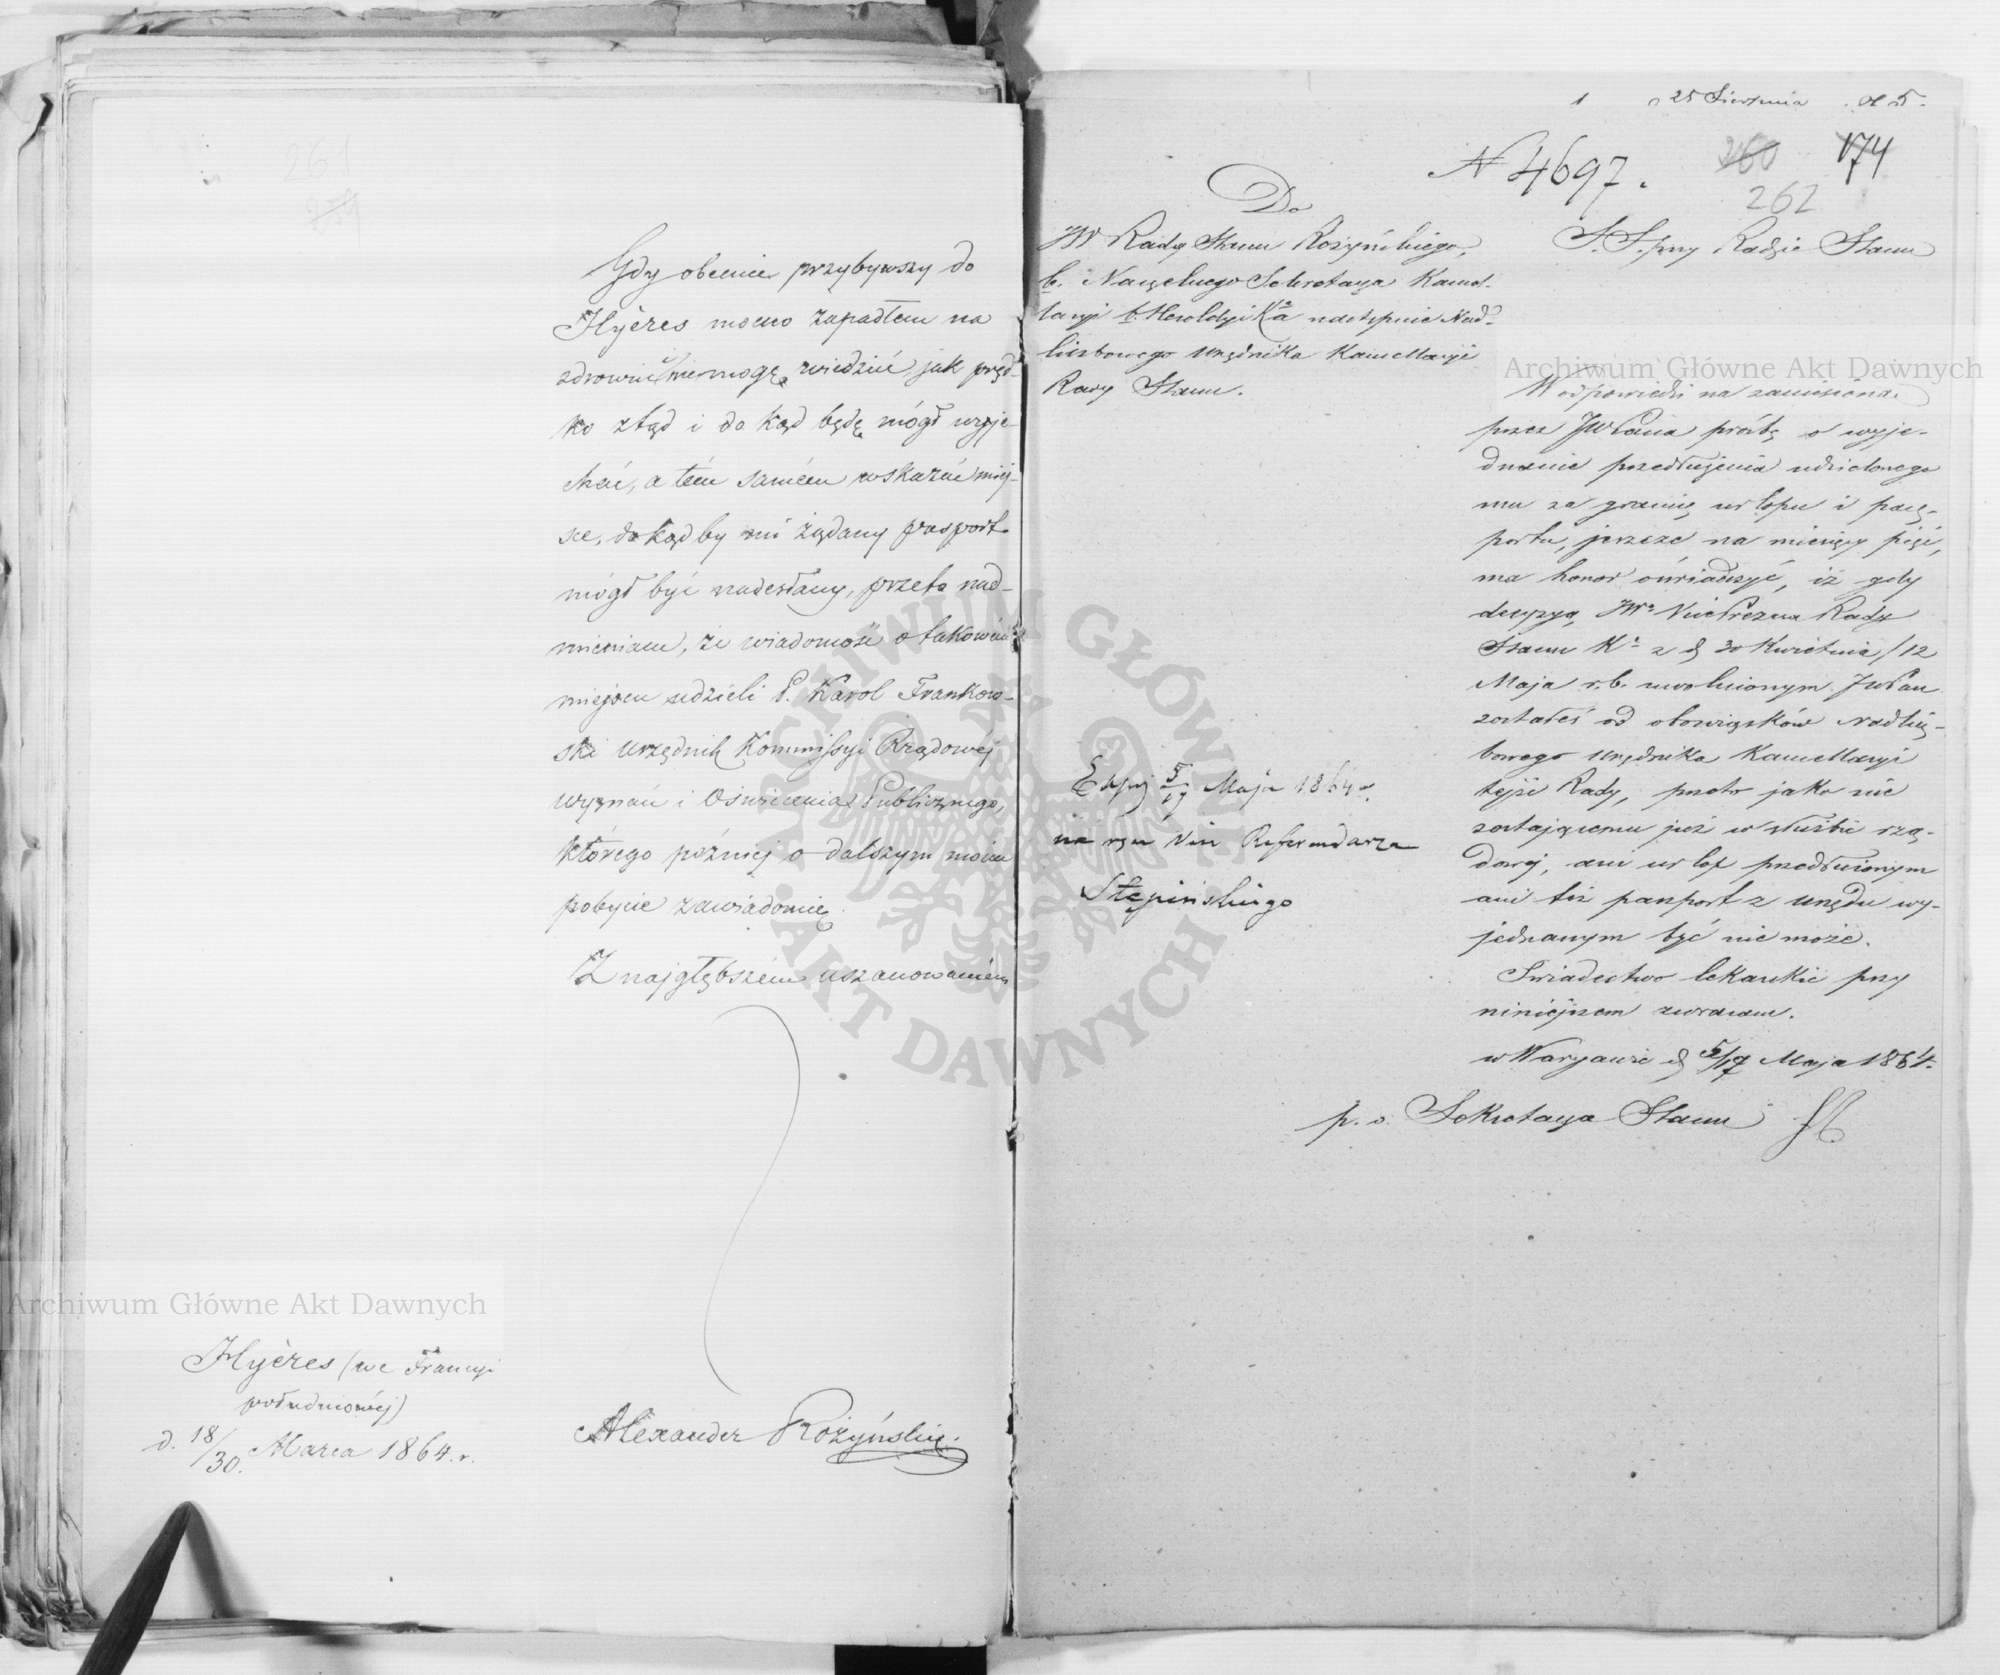 261
259
Gdy obecnie przybywszy do
Hyères mocno zapadłem na
zdrowiu i niemogę wiedzieć jak pręd-
ko ztąd i do kąd będę mógł wyje-
chać, a tém samém wskazać miej-
sce, do kąd by mi żądany pasport
mógł być nadesłany, przeto nad-
mieniam, że wiadomość o takowém
miejscu udzieli P. Karol Frankow-
ski urzędnik Kommissyi Rządowéj
wyznań i Oświecenia Publicznego,
którego później o dalszym moim
pobycie zawiadomię.
Z najgłębszém uszanowaniem
Hyères (we Francyi
południowéj)
d. 18/30. Marca 1864. r.
Alexander Rożyński.
25 Sierpnia
N 4697.
260
174
262
Do
JW Radcy Stanu Rożyńskiego,
b. Naczelnego Sekretarza Kancel-
laryi b. Heroldyi Kr a następnie Nad-
liczbowego urzędnika Kancellaryi
Rady Stanu.
S. S. przy Radzie Stanu
W odpowiedzi na zaniesioną
przez JW Pana prośbę o wyje-
dnanie przedłużenia udzielonego
mu za granicę urlopu i pasz-
portu, jeszcze na miesięcy pięć,
ma honor oświadczyć, iż gdy
decyzyą JW Vice Prezesa Rady
Stanu Kr z d 30 Kwietnia / 12
Maja r. b. uwolnionym JW Pan
zostałeś od obowiązków nadlicz-
bowego urzędnika Kancellaryi
téjże Rady, przeto jako nie
zostającemu już w służbie rzą-
dowéj, ani urlop przedłużonym
ani też paszport z urzędu wy-
jednanym być nie może.
Świadectwo lekarskie przy
niniejszem zwracam.
w Warszawie d 5/17 Maja 1864.
p. o. Sekretarza Stanu
Exped 5/17 Maja 1864 r.
na ręce Vice Referendarza
Stępińskiego
Archiwum Główne Akt Dawnych
Archiwum Główne Akt Dawnych
ARCHIWUM GŁÓWNE
AKT DAWNYCH